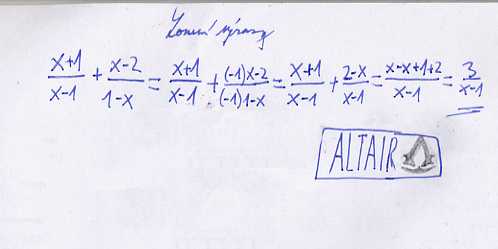 Lomené výrazy
x+1/x-1 + x-2/1-x = x+1/x-1 + (-1)x-2/(-1)1-x = x+1/x-1 + 2-x/x-1 = x-x+1+2/x-1 = 3/x-1
ALTAIR